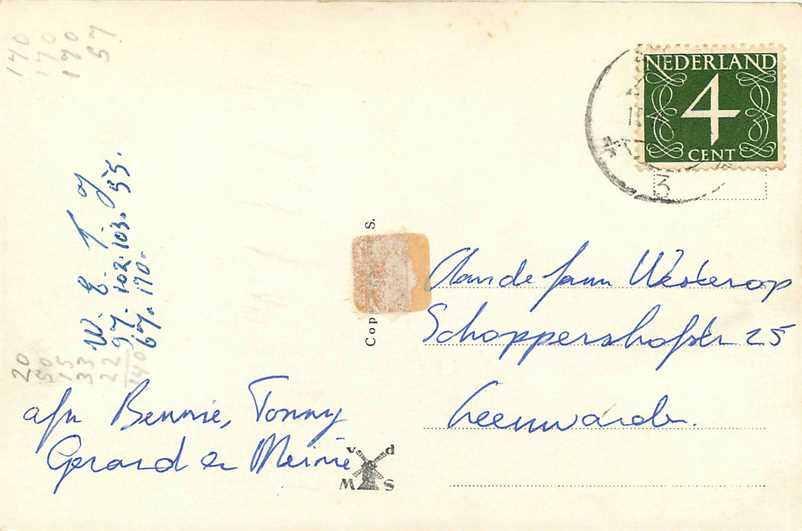 NEDERLAND
4
CENT
3
Aan de fam Westerop
Schoppershofstr 25
Leeuwarden.
afn Bennie, Tonny
Gerard en Meinie
v d
M S
Cop
S.
W. E. T. J
97. 102. 103. 55.
67. 170.
170
170
170
57
20
50
15
33
22
140